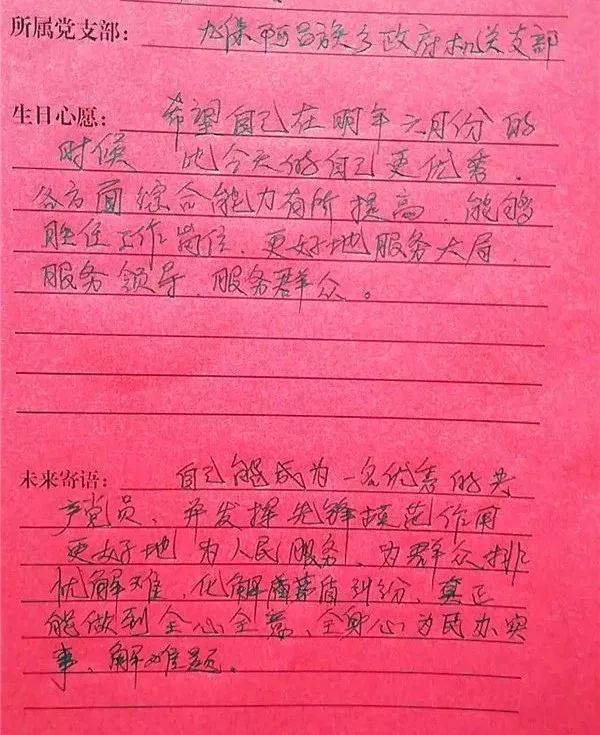 所属党支部：九保阿昌族乡政府机关支部
生日心愿：希望自己在明年六月份的
时候 比今天的自己更优秀，
各方面综合能力有所提高，能够
胜任工作岗位，更好地服务大局，
服务领导，服务群众。
未来寄语：自己能成为一名优秀的共
产党员，并发挥先锋模范作用
更好地为人民服务，为群众排
忧解难，化解矛盾纠纷，真正
能做到全心全意，全身心为民办实
事，解难题。